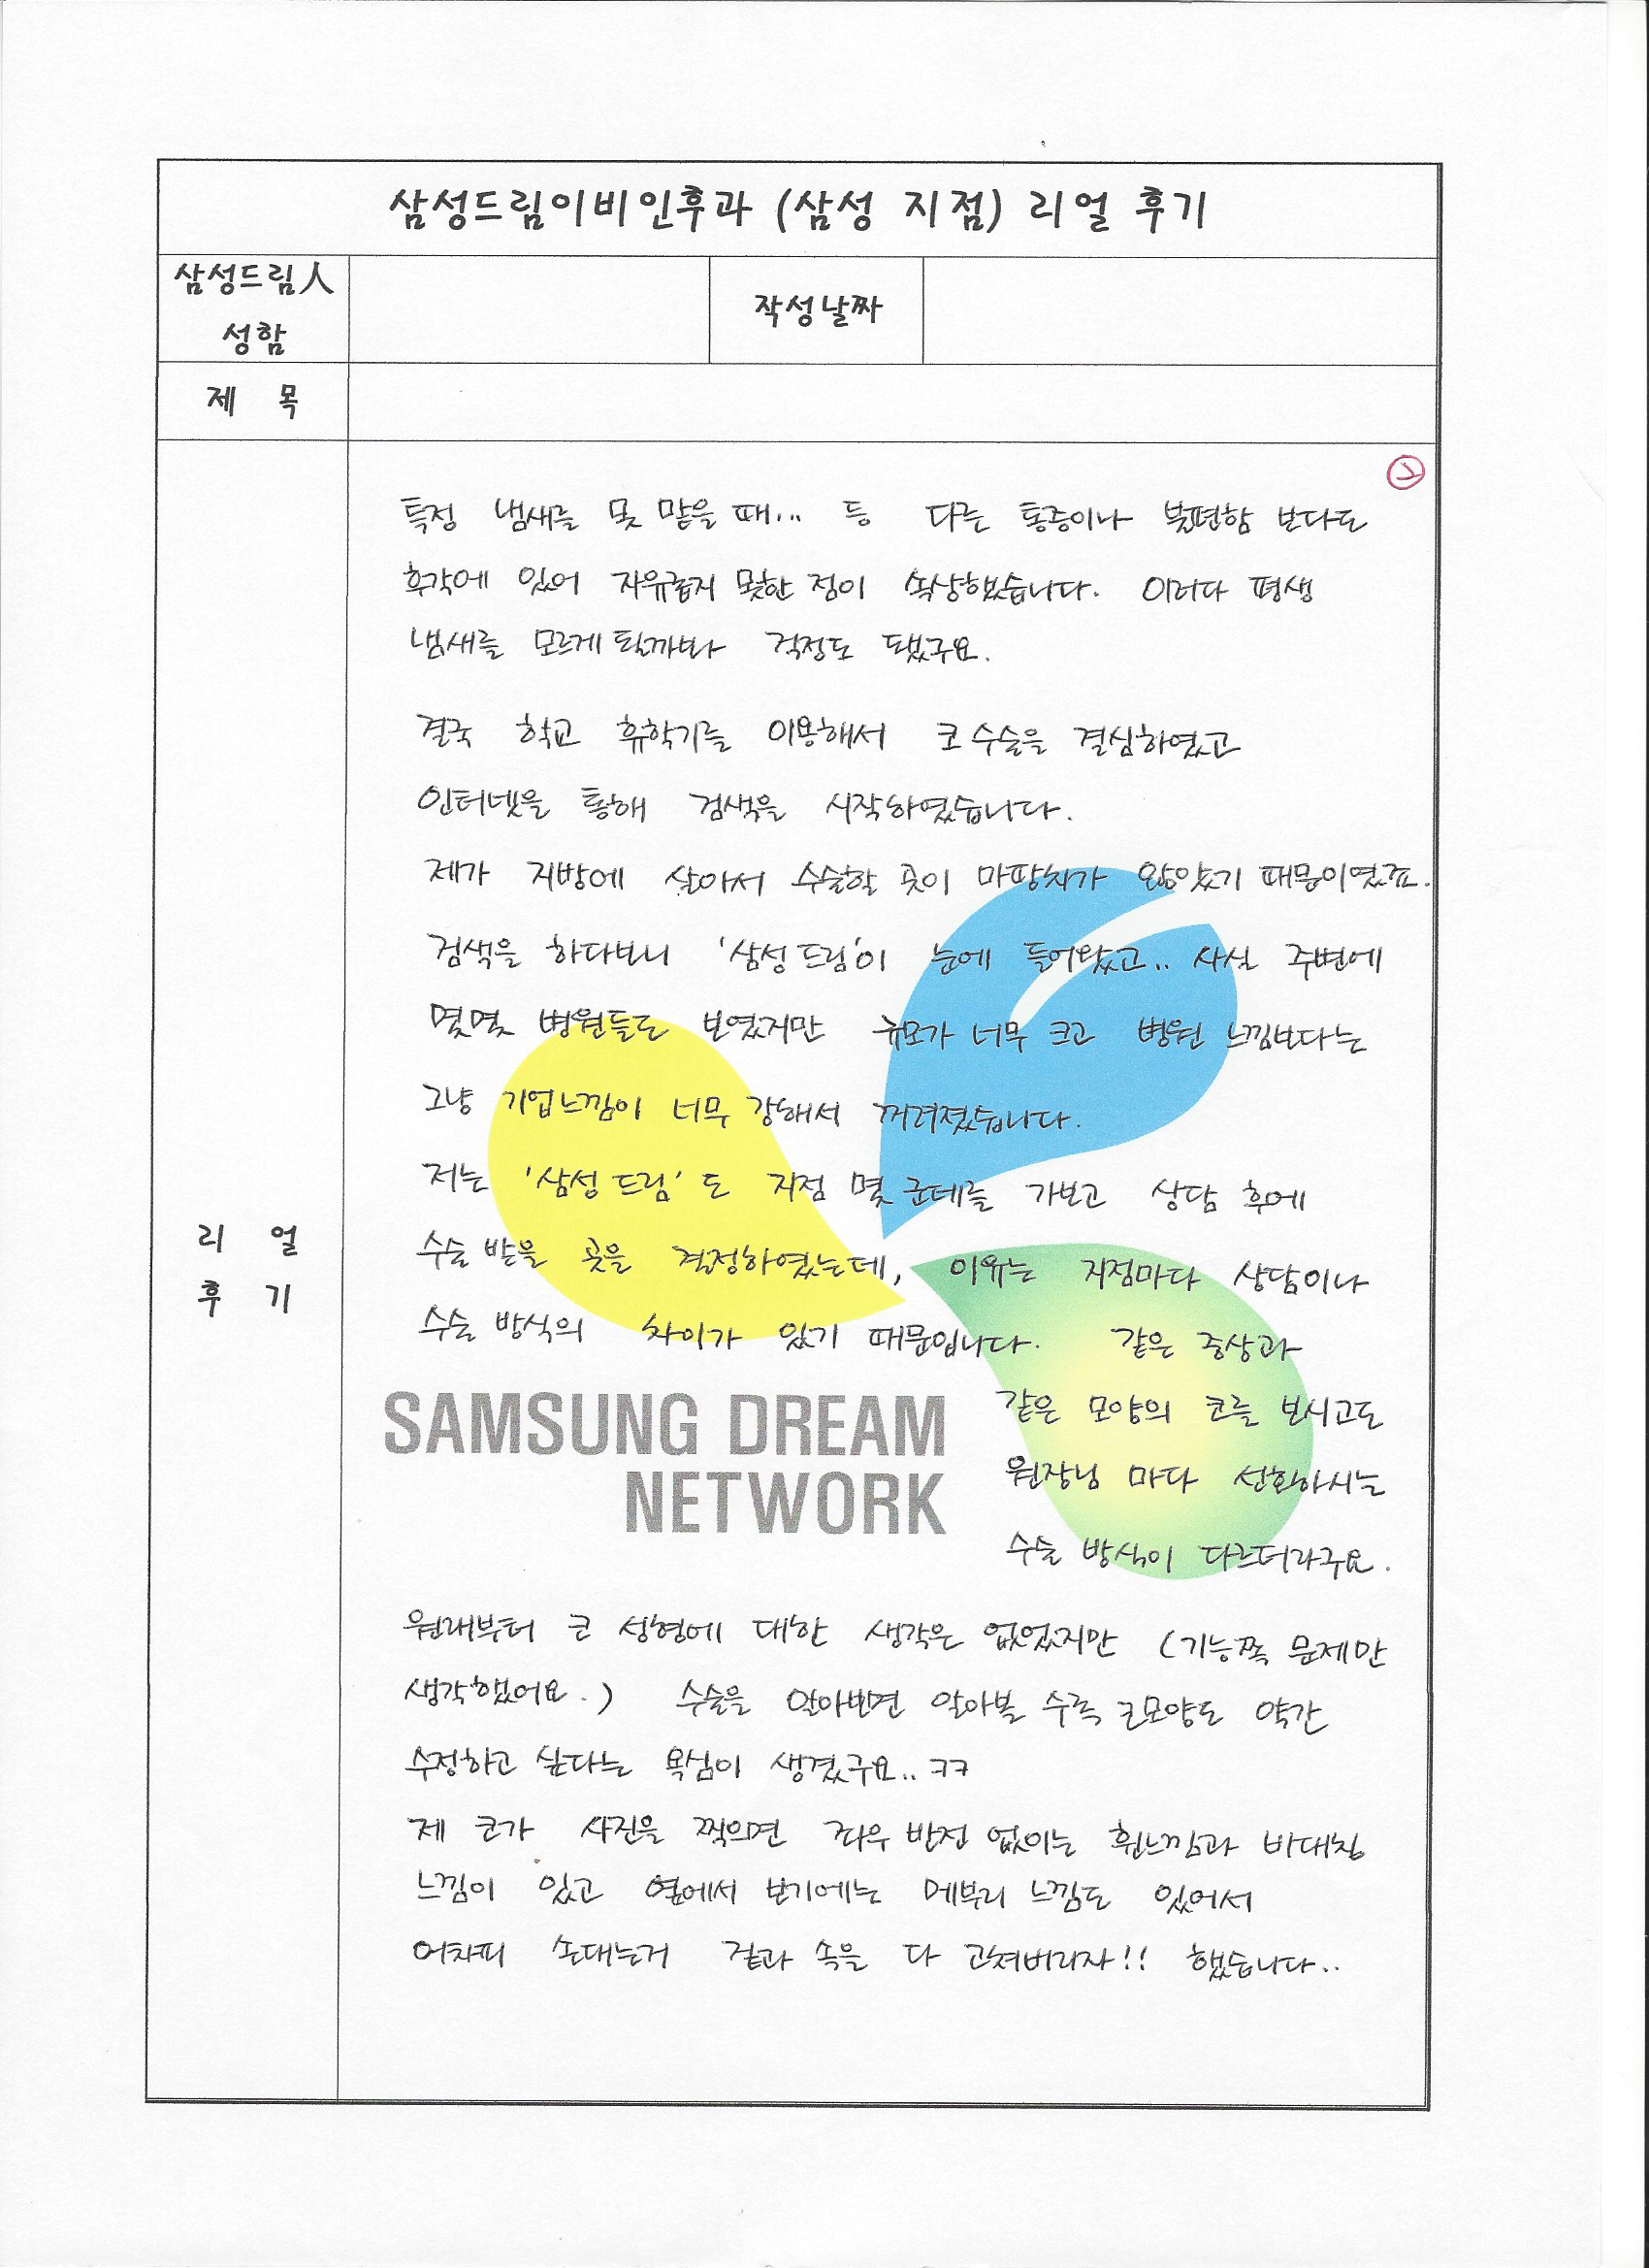 삼성드림이비인후과 (삼성 지점) 리얼 후기
삼성드림人
성함
작성날짜
제 목
②
특정 냄새를 못 맡을 때... 등 다른 통증이나 불편함 보다도
후각에 있어 자유롭지 못한 점이 속상했습니다. 이러다 평생
냄새를 모르게 될까봐 걱정도 됐구요.
결국 학교 휴학기를 이용해서 코 수술을 결심하였고
인터넷을 통해 검색을 시작하였습니다.
제가 지방에 살아서 수술할 곳이 마땅치가 않았기 때문이였죠.
검색을 하다보니 '삼성드림'이 눈에 들어왔고.. 사실 주변에
몇몇 병원들도 보였지만 규모가 너무 크고 병원 느낌보다는
그냥 기업느낌이 너무 강해서 꺼려졌습니다.
저는 '삼성드림' 도 지점 몇 군데를 가보고 상담 후에
수술 받을 곳을 결정하였는데, 이유는 지점마다 상담이나
수술 방식의 차이가 있기 때문입니다. 같은 증상과
같은 모양의 코를 보시고도
원장님 마다 선호하시는
수술 방식이 다르더라구요.
SAMSUNG DREAM
NETWORK
리 얼
후 기
원래부터 코 성형에 대한 생각은 없었지만 (기능쪽 문제만
생각했어요.) 수술을 알아보면 알아볼 수록 코모양도 약간
수정하고 싶다는 욕심이 생겼구요.. ㅋㅋ
제 코가 사진을 찍으면 좌우 반전 없이는 휜느낌과 비대칭
느낌이 있고 옆에서 보기에는 메부리 느낌도 있어서
어차피 손대는거 겉과 속을 다 고쳐버리자!! 했습니다..